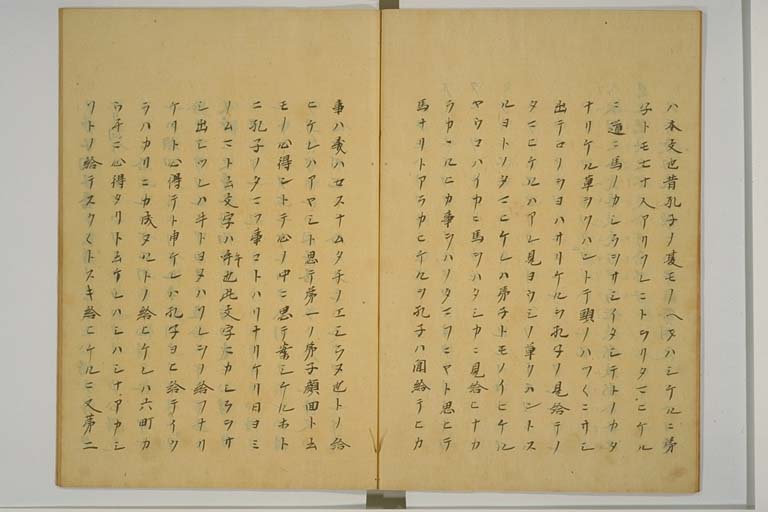 ハ本文也昔孔子ノ道モノヘオハシケルニ弟
子トモ七十人アリクシニトヲリタマヒケル
ニ道ニ馬ノカシラヲサシイタシテトノカタ
ナリケル草ヲクハントテ頭ノハツルヽニサシ
出テヨリヲヨハサリケルヲ孔子ノ見給テノ
タマヒケルハアレ見ヨウシノ草クハントス
ルヨトソノタマヒケレハ弟子トモノイヒケル
ヤウコハイカニ馬ヲハタシカニ見給ヒナカ
ラカヽルヒカ事ヲハノタマフニヤト思ヒテ
馬ナリトアラカヒケルヲ孔子ハ聞給テヒカ
事ハ我ハセスナムタチノエシラヌ也トノ給
ヒケレハアヤシト思テ第一ノ弟子顔回ト云
モノ心得ントテ心ノ中ニ思テ案シケルホト
ニ孔子ノタマフ事コトハリナリケリ日ヨミ
ノムマト云文字ハ午也此文字ニカシラヲサ
シ出シツレハ牛トヨメハクレシノ給フナリ
ケリト心得テト申ケレハ孔子ヨヒ給テイク
ラハカリニカ成ヌルトノ給ヒケレハ六町カ
ウチニ心得タリト云ケレハシハシナアカシ
ソトノ給テスクストスキ給ヒケルニ又第二